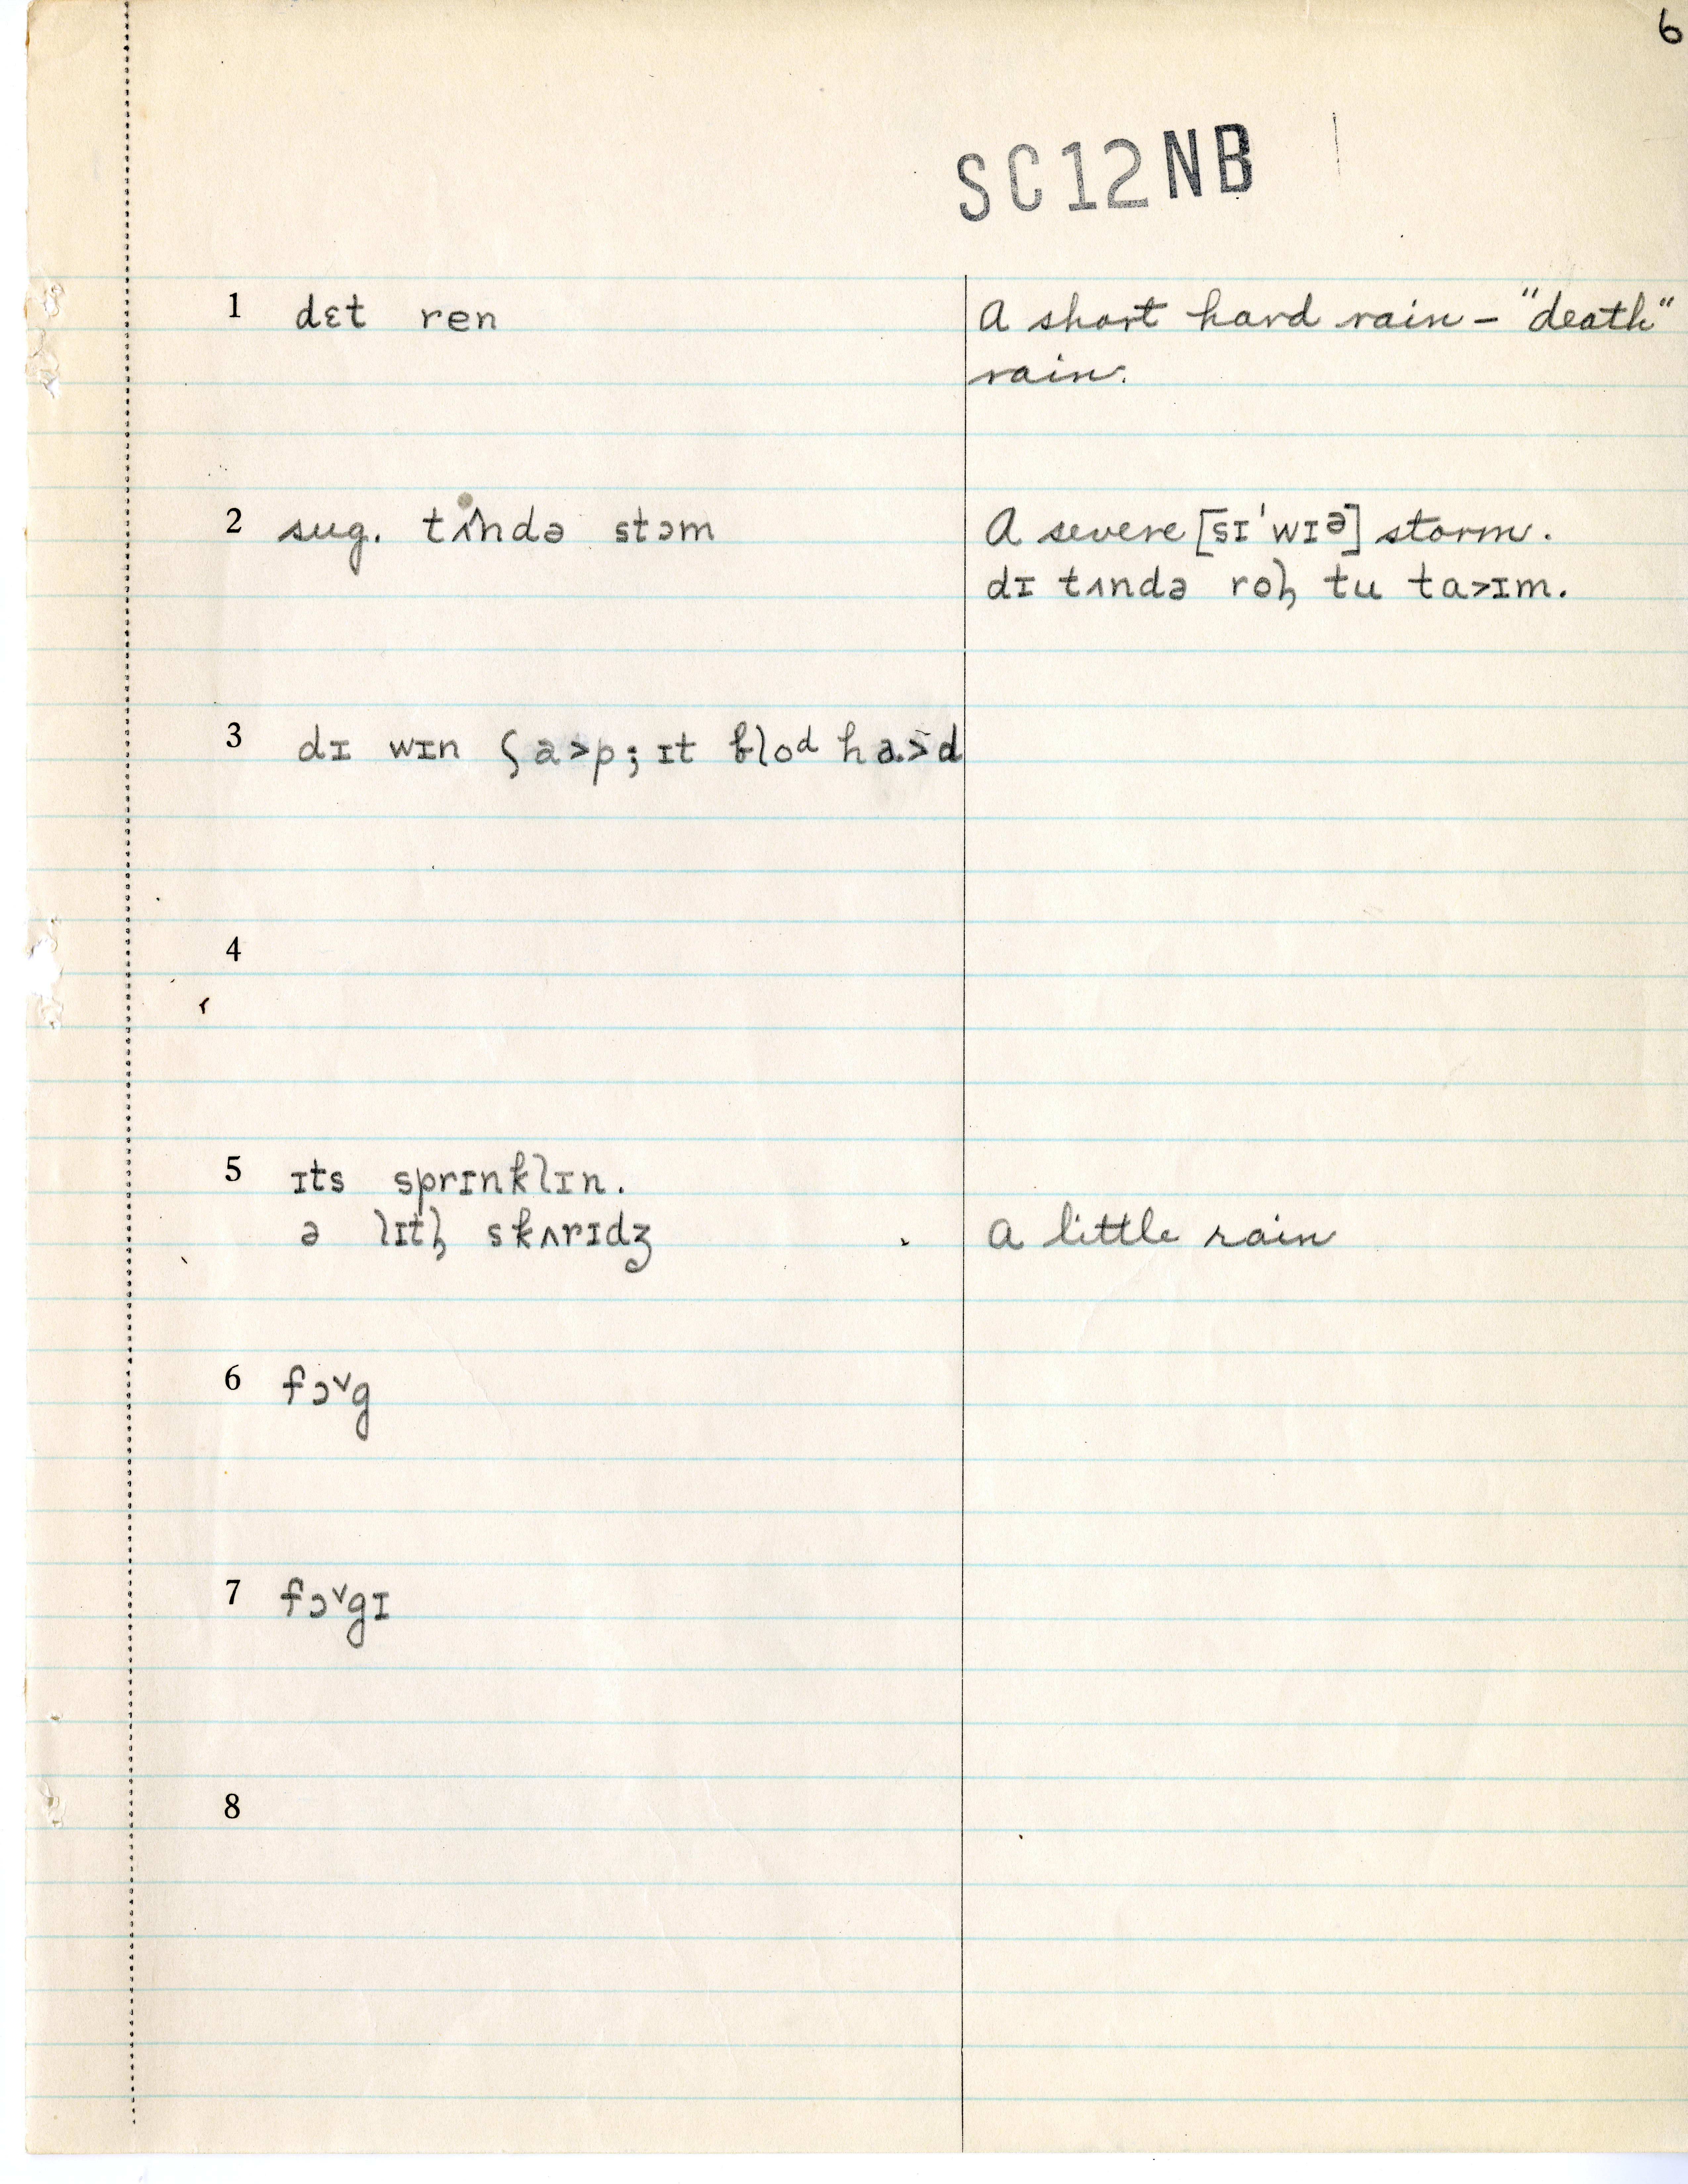 6
SC12NB
1 dɛt ren
A short hard rain – "death"
rain.
2 sug. tʌndə stɔm
A severe [sɪ'wɪə] storm.
dɪ tʌndə rol̩ tu ta>ɪm.
3 dɪ wɪn ʃa>p; ɪt blod ha>d
4
5 ɪts sprɪnklɪn.
ə lɪtl̩ skʌrɪdʒ
a little rain
6 fɔ˅g
7 fɔ˅gɪ
8